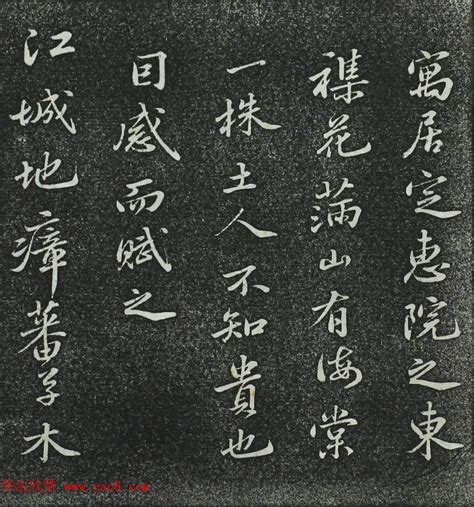 寓居定惠院之東
襍花滿山有海棠
一株土人不知貴也
囙感而賦之
江城地瘴蕃草木
www.yac8.com